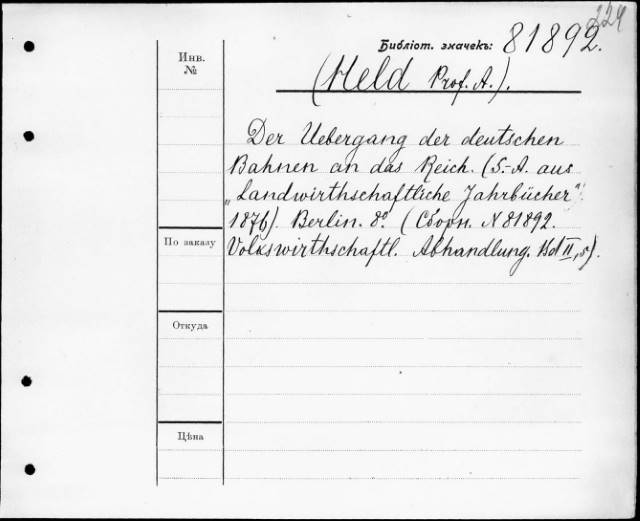 224
Библіот. значекъ: 81892.
Инв.
№
(Held Prof. A.).
Der Uebergang der deutschen
Bahnen an das Reich. (S.-A. aus
„Landwirthschaftliche Jahrbücher“
1876). Berlin. 8º. (Сборн. N 81892.
По заказу
Volkswirthschaftl. Abhandlung. Bd II, 5).
Откуда
Цѣна